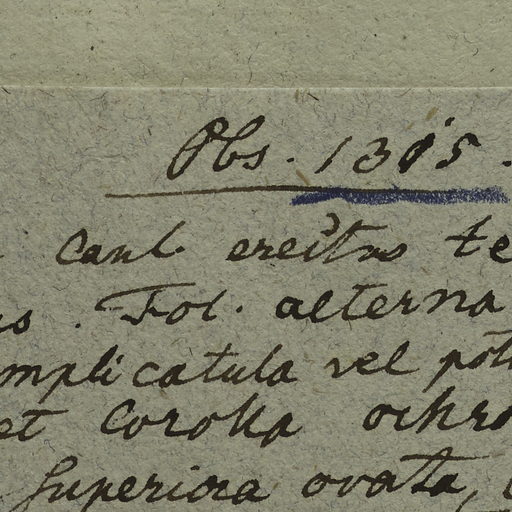 Obs. 1315.
caul. erectus te
us. Fol. alterna
mplicatula vel pot
et Corolla ochro
Superiora ovata,